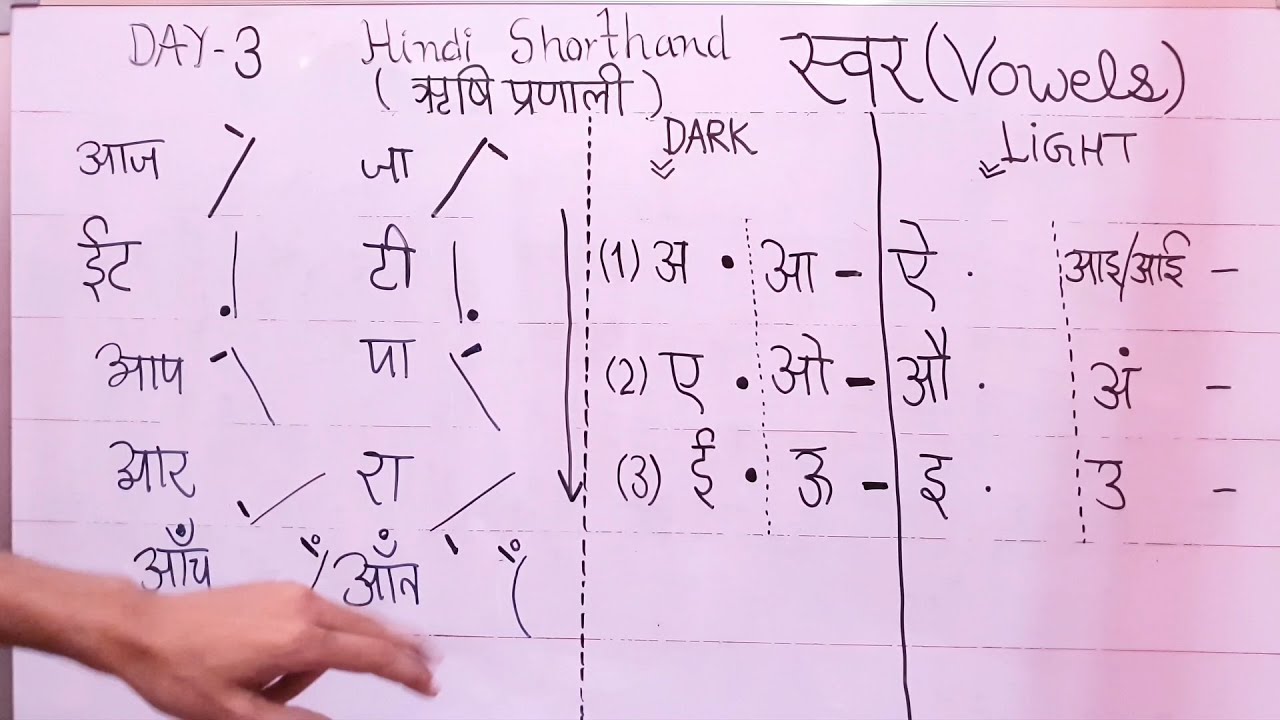 DAY-3 Hindi Shorthand स्वर (Vowels)
(ऋषि प्रणाली)
DARK LiGHT
आज जा
ईट टी
आप पा
आर रा
आँच आँत
(1) अ • आ - ऐ · आइ/आई -
(2) ए • ओ - औ · अं -
(3) ई • ऊ - इ · उ -